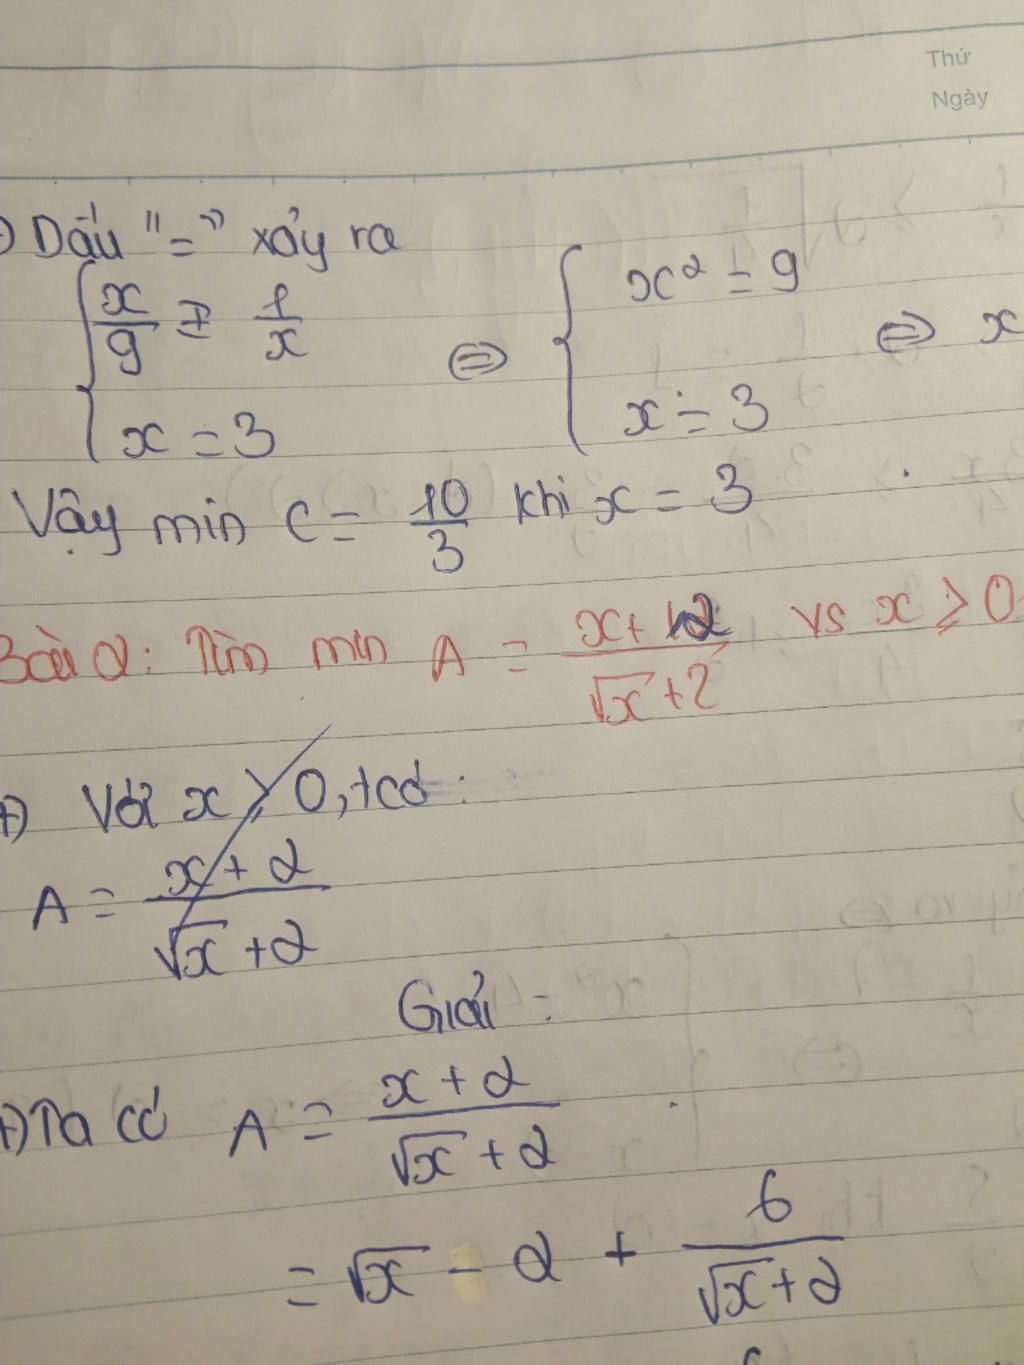 Thứ
Ngày
+) Dấu "=" xảy ra
{ x/9 = 1/x ⇔ { x² = 9 ⇔ x
x = 3 x = 3
Vậy min C = 10/3 khi x = 3
Bài 2: Tìm min A = (x + 2)/(√x + 2) vs x ≥ 0
+) Với x ≥ 0, tcó:
A = (x + 2)/(√x + 2)
Giải:
+) Ta có A = (x + 2)/(√x + 2)
= √x - 2 + 6/(√x + 2)